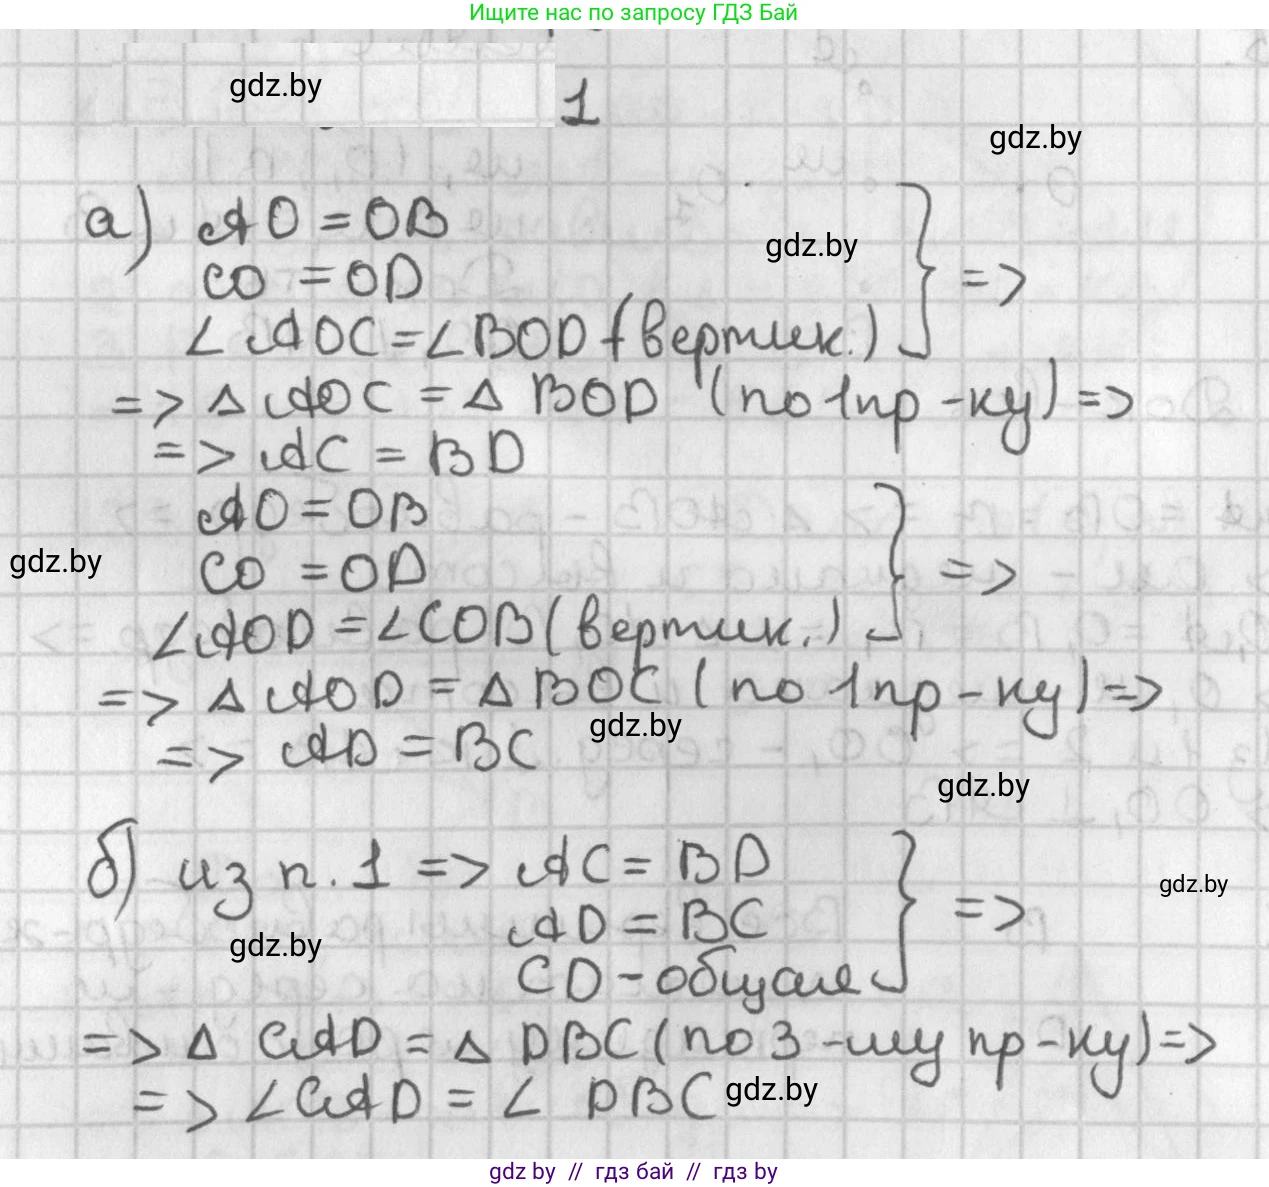 Ищите нас по запросу ГДЗ Бай
gdz.by
1
gdz.by
а) AO = OB
gdz.by
CO = OD
=>
∠AOC = ∠BOD (вертик.)
=> Δ AOC = Δ BOD (по 1 пр-ку) =>
=> AC = BD
AO = OB
gdz.by
CO = OD
=>
∠AOD = ∠COB (вертик.)
=> Δ AOD = Δ BOC (по 1 пр-ку) =>
gdz.by
=> AD = BC
gdz.by
б) из п. 1 => AC = BD
gdz.by
AD = BC
=>
gdz.by
CD - общая
=> Δ CAD = Δ DBC (по 3-му пр-ку) =>
=> ∠CAD = ∠ DBC
gdz.by
gdz by // гдз бай // гдз by